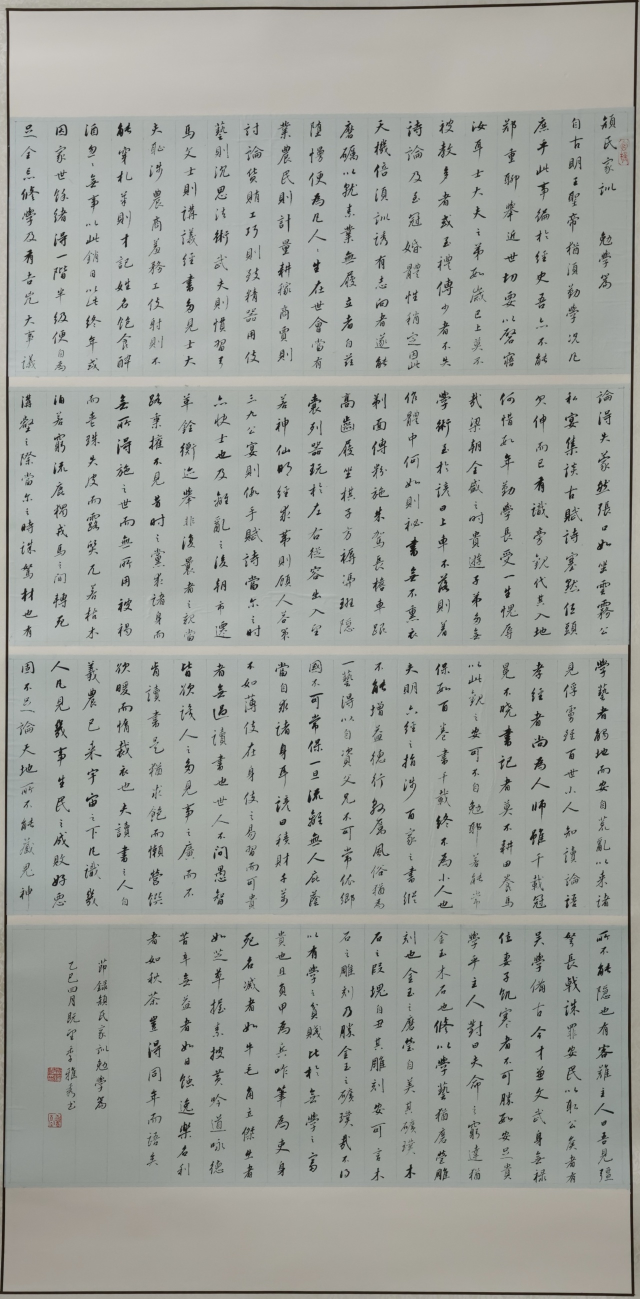 顏氏家訓 勉學篇
自古明王聖帝猶須勤學況凡
庶乎此事徧於經史吾亦不能
鄭重聊舉近世切要以啓寤
汝耳士大夫之弟數歲已上莫不
被教多者或至禮傳少者不失
詩論及至冠婚體性稍定因此
天機倍須訓誘有志尚者遂能
磨礪以就素業無履立者自茲
墮慢便為凡人人生在世會當有
業農民則計量耕稼商賈則
討論貨賄工巧則致精器用伎
藝則沉思法術武夫則慣習弓
馬文士則講議經書多見士大
夫恥涉農商羞務工伎射則不
能穿札筆則才記姓名飽食醉
酒忽忽無事以此銷日以此終年或
因家世餘緒得一階半級便自為
足全忘修學及有吉凶大事議
論得失蒙然張口如坐雲霧公
私宴集談古賦詩塞默低頭
欠伸而已有識旁觀代其入地
何惜數年勤學長受一生愧辱
哉梁朝全盛之時貴遊子弟多無
學術至於諺曰上車不落則著
作體中何如則祕書無不熏衣
剃面傅粉施朱駕長檐車跟
高齒屐坐棋子方褥憑班隱
囊列器玩於左右從容出入望
若神仙明經求第則顧人答策
三九公宴則假手賦詩當爾之時
亦快士也及離亂之後朝市遷
革銓衡選舉非復曩者之親當
路秉權不見昔時之黨求諸身而
無所得施之世而無所用被褐
而喪珠失皮而露質兀若枯木
泊若窮流鹿獨戎馬之間轉死
溝壑之際當爾之時誠駑材也有
學藝者觸地而安自荒亂以來諸
見俘虜雖百世小人知讀論語
孝經者尚為人師雖千載冠
冕不曉書記者莫不耕田養馬
以此觀之安可不自勉耶若能常
保數百卷書千載終不為小人也
夫明六經之指涉百家之書縱
不能增益德行敦厲風俗猶為
一藝得以自資父兄不可常依鄉
國不可常保一旦流離無人庇蔭
當自求諸身耳諺曰積財千萬
不如薄伎在身伎之易習而可貴
者無過讀書也世人不問愚智
皆欲識人之多見事之廣而不
肯讀書是猶求飽而懶營饌
欲暖而惰裁衣也夫讀書之人自
羲農已來宇宙之下凡識幾
人凡見幾事生民之成敗好惡
固不足論天地所不能藏鬼神
所不能隱也有客難主人曰吾見彊
弩長戟誅罪安民以取公侯者有
吳學備古今才兼文武身無祿
位妻子飢寒者不可勝數安足貴
學乎主人對曰夫命之窮達猶
金玉木石也修以學藝猶磨瑩雕
刻也金玉之磨瑩自美其礦璞木
石之段塊自丑其雕刻安可言木
石之雕刻乃勝金玉之礦璞哉不得
以有學之貧賤比於無學之富
貴也且負甲為兵咋筆為吏身
死名滅者如牛毛角立傑出者
如芝草握素披黃吟道詠德
苦辛無益者如日蝕逸樂名利
者如秋荼豈得同年而語矣
節錄顏氏家訓勉學篇
乙巳四月既望李雅秀书